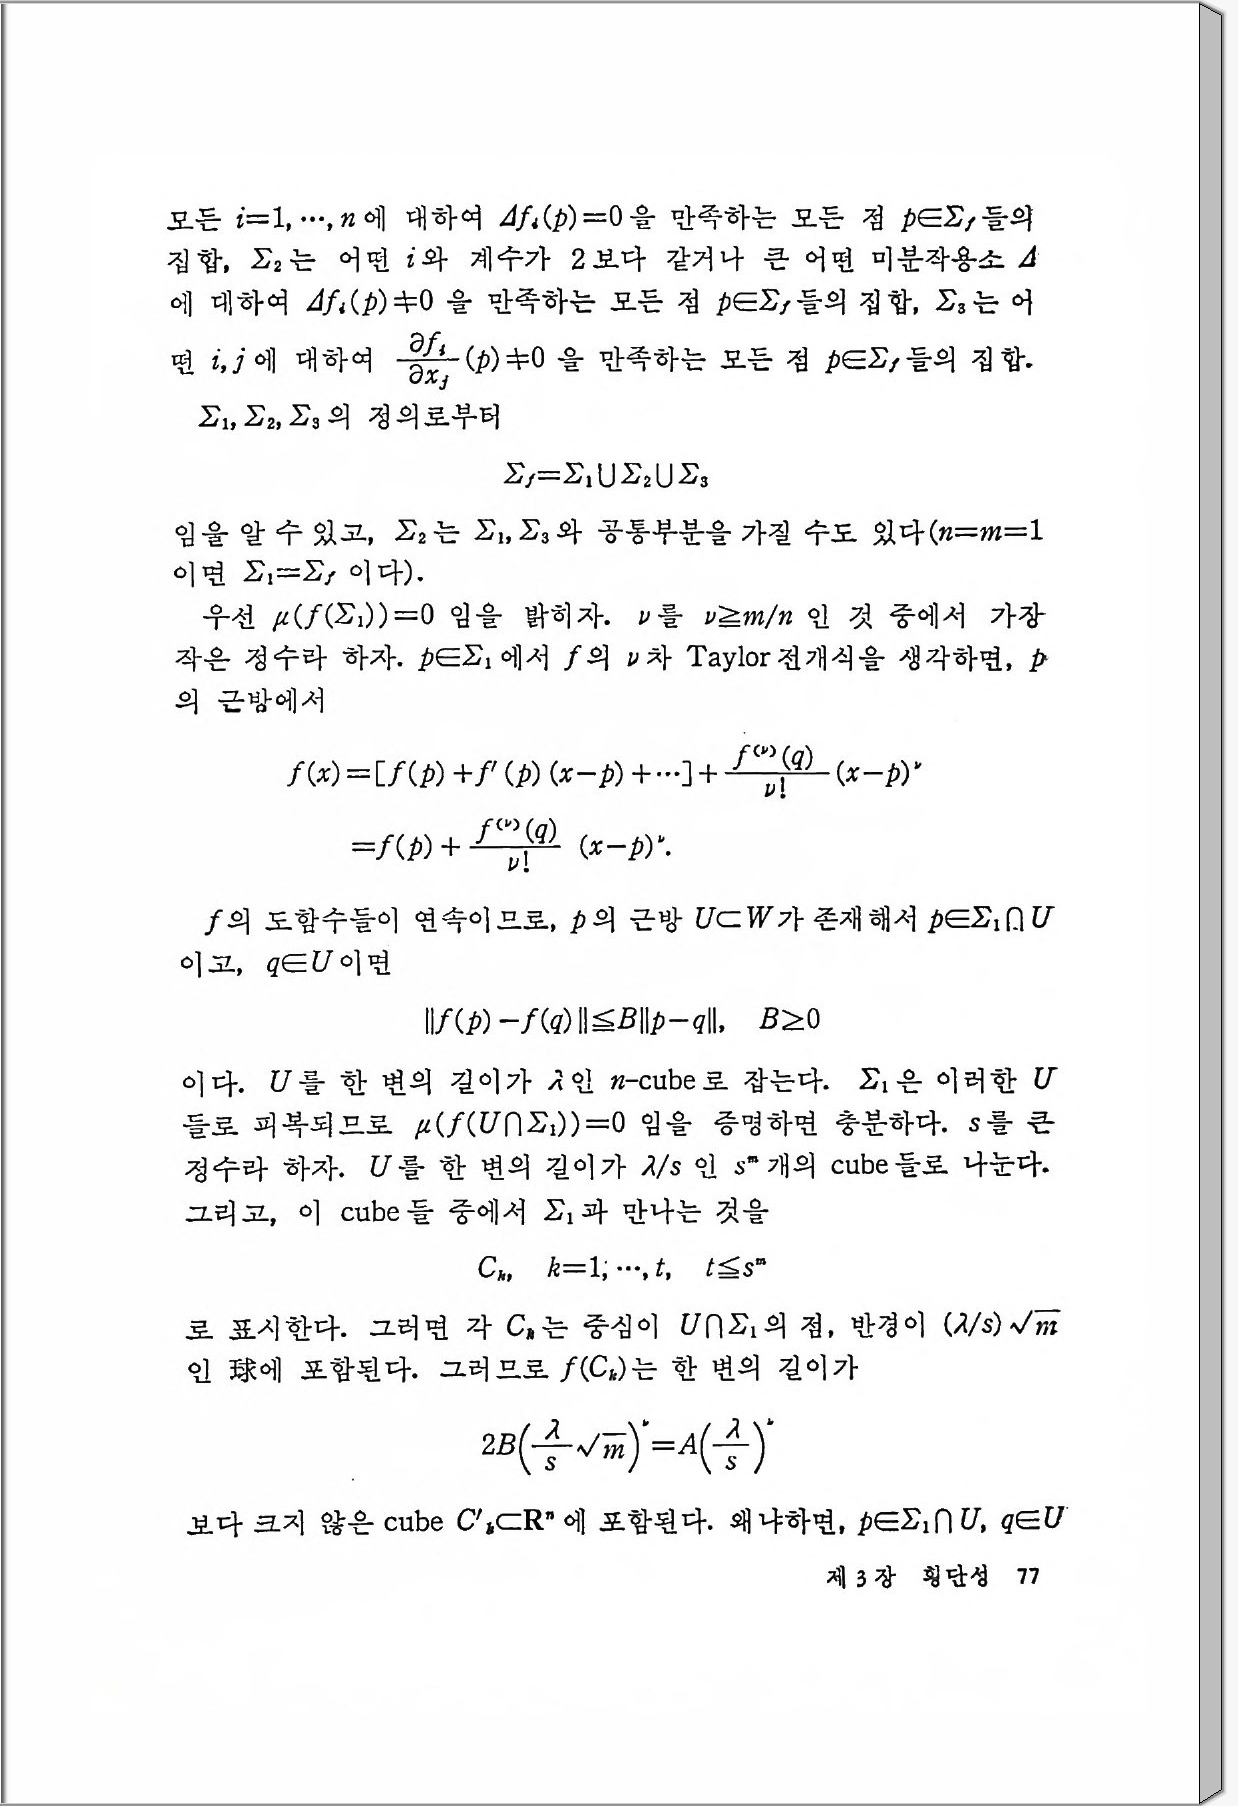 모든 i=1, ⋯, n에 대하여 Δfᵢ(p)=0을 만족하는 모든 점 p∈Σ_f들의
집합, Σ₂는 어떤 i와 계수가 2보다 같거나 큰 어떤 미분작용소 Δ
에 대하여 Δfᵢ(p)≠0 을 만족하는 모든 점 p∈Σ_f들의 집합, Σ₃는 어
떤 i, j에 대하여 ∂fᵢ/∂xⱼ (p)≠0 을 만족하는 모든 점 p∈Σ_f들의 집합.
Σ₁, Σ₂, Σ₃의 정의로부터
Σ_f=Σ₁∪Σ₂∪Σ₃
임을 알 수 있고, Σ₂는 Σ₁, Σ₃와 공통부분을 가질 수도 있다(n=m=1
이면 Σ₁=Σ_f 이다).
우선 μ(f(Σ₁))=0 임을 밝히자. ν를 ν≧m/n 인 것 중에서 가장
작은 정수라 하자. p∈Σ₁에서 f의 ν차 Taylor전개식을 생각하면, p
의 근방에서
f(x)=[f(p)+f′(p)(x−p)+⋯]+ f^(ν)(q)/ν! (x−p)^ν
=f(p)+ f^(ν)(q)/ν! (x−p)^ν.
f의 도함수들이 연속이므로, p의 근방 U⊂W가 존재해서 p∈Σ₁∩U
이고, q∈U이면
‖f(p)−f(q)‖≦B‖p−q‖, B≥0
이다. U를 한 변의 길이가 λ인 n-cube로 잡는다. Σ₁은 이러한 U
들로 피복되므로 μ(f(U∩Σ₁))=0 임을 증명하면 충분하다. s를 큰
정수라 하자. U를 한 변의 길이가 λ/s 인 s^m개의 cube들로 나눈다.
그리고, 이 cube들 중에서 Σ₁과 만나는 것을
C_k, k=1, ⋯, t, t≦s^m
로 표시한다. 그러면 각 C_k는 중심이 U∩Σ₁의 점, 반경이 (λ/s)√m
인 球에 포함된다. 그러므로 f(C_k)는 한 변의 길이가
2B(λ/s √m)^ν=A(λ/s)^ν
보다 크지 않은 cube C′_k⊂Rⁿ에 포함된다. 왜냐하면, p∈Σ₁∩U, q∈U
제 3 장 횡단성 77